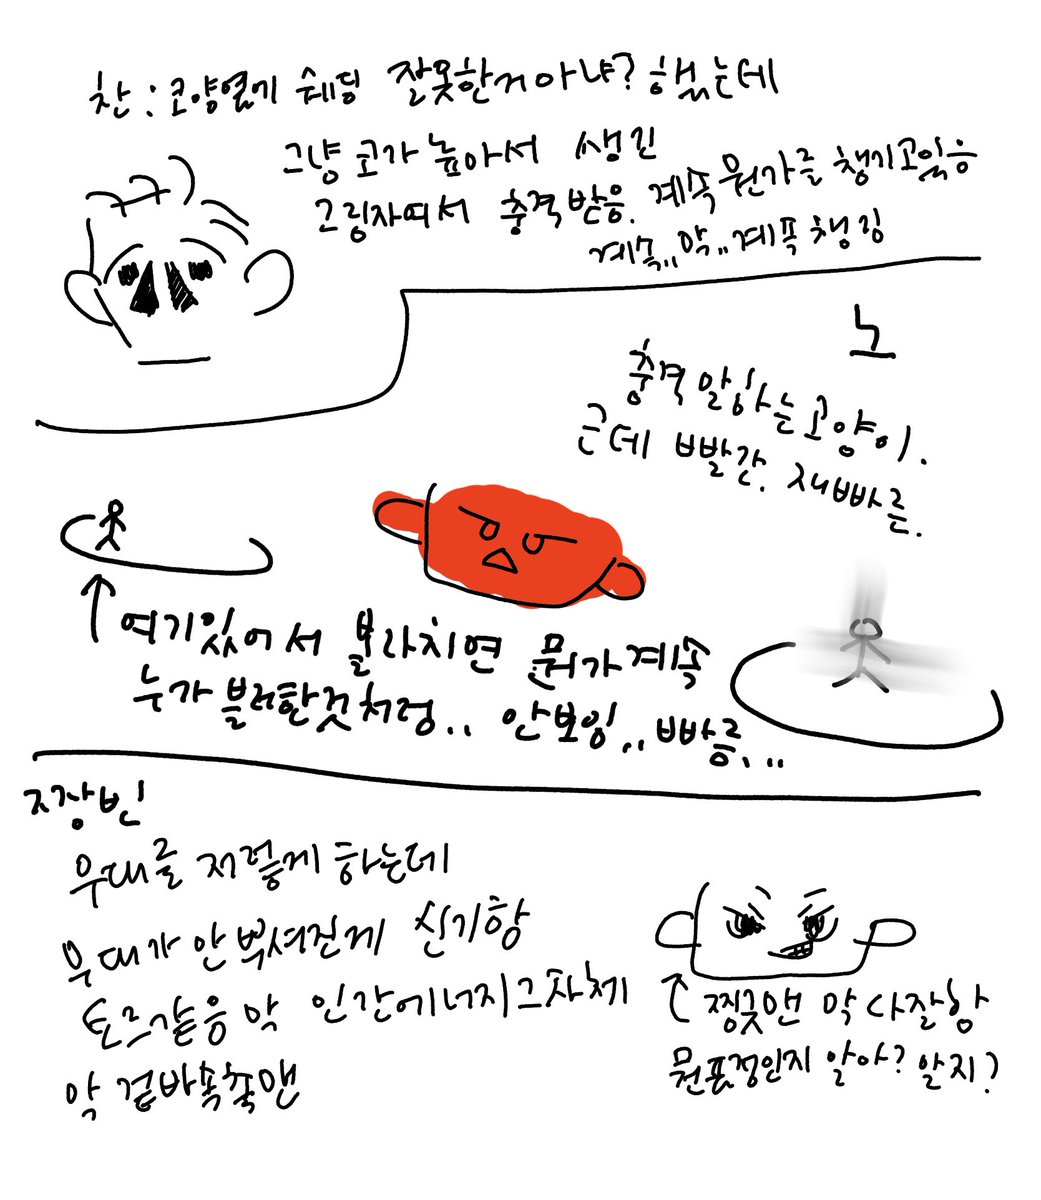 찬 : 코양옆게 쉐딩 잘못한거아냐? 했는데
그냥 코가 높아서 생긴
그림자여서 충격받음. 계속 뭔가를 챙기고있음
계속,, 막,, 계쪽 챙김
노
충격 알하는 고양이.
근데 빨간. 재빠른.
여기있어서 볼라치면 뭔가계속
누가 블러한것처럼.. 안보임,,빠름,..
지장빈
무대를 저렇게 하는데
무대가 안뿌셔진게 신기함
토르같음 막 인간에너지그자체
막 겉바속촉맨
찡긋맨 막 다잘함
뭔표정인지 알아? 알지?